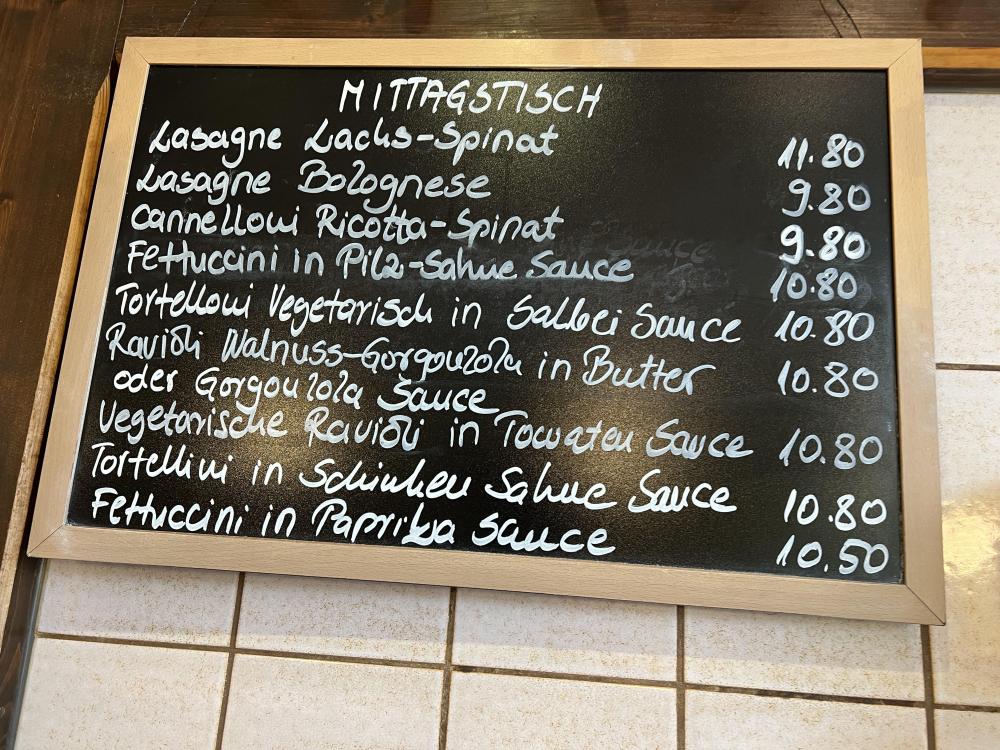 MITTAGSTISCH
Lasagne Lachs-Spinat 11.80
Lasagne Bolognese 9.80
Cannelloni Ricotta-Spinat 9.80
Fettuccini in Pilz-Sahne Sauce 10.80
Tortelloni Vegetarisch in Salbei Sauce 10.80
Ravioli Walnuss-Gorgonzola in Butter 10.80
oder Gorgonzola Sauce
Vegetarische Ravioli in Tomaten Sauce 10.80
Tortellini in Schinken Sahne Sauce 10.80
Fettuccini in Paprika Sauce 10.50